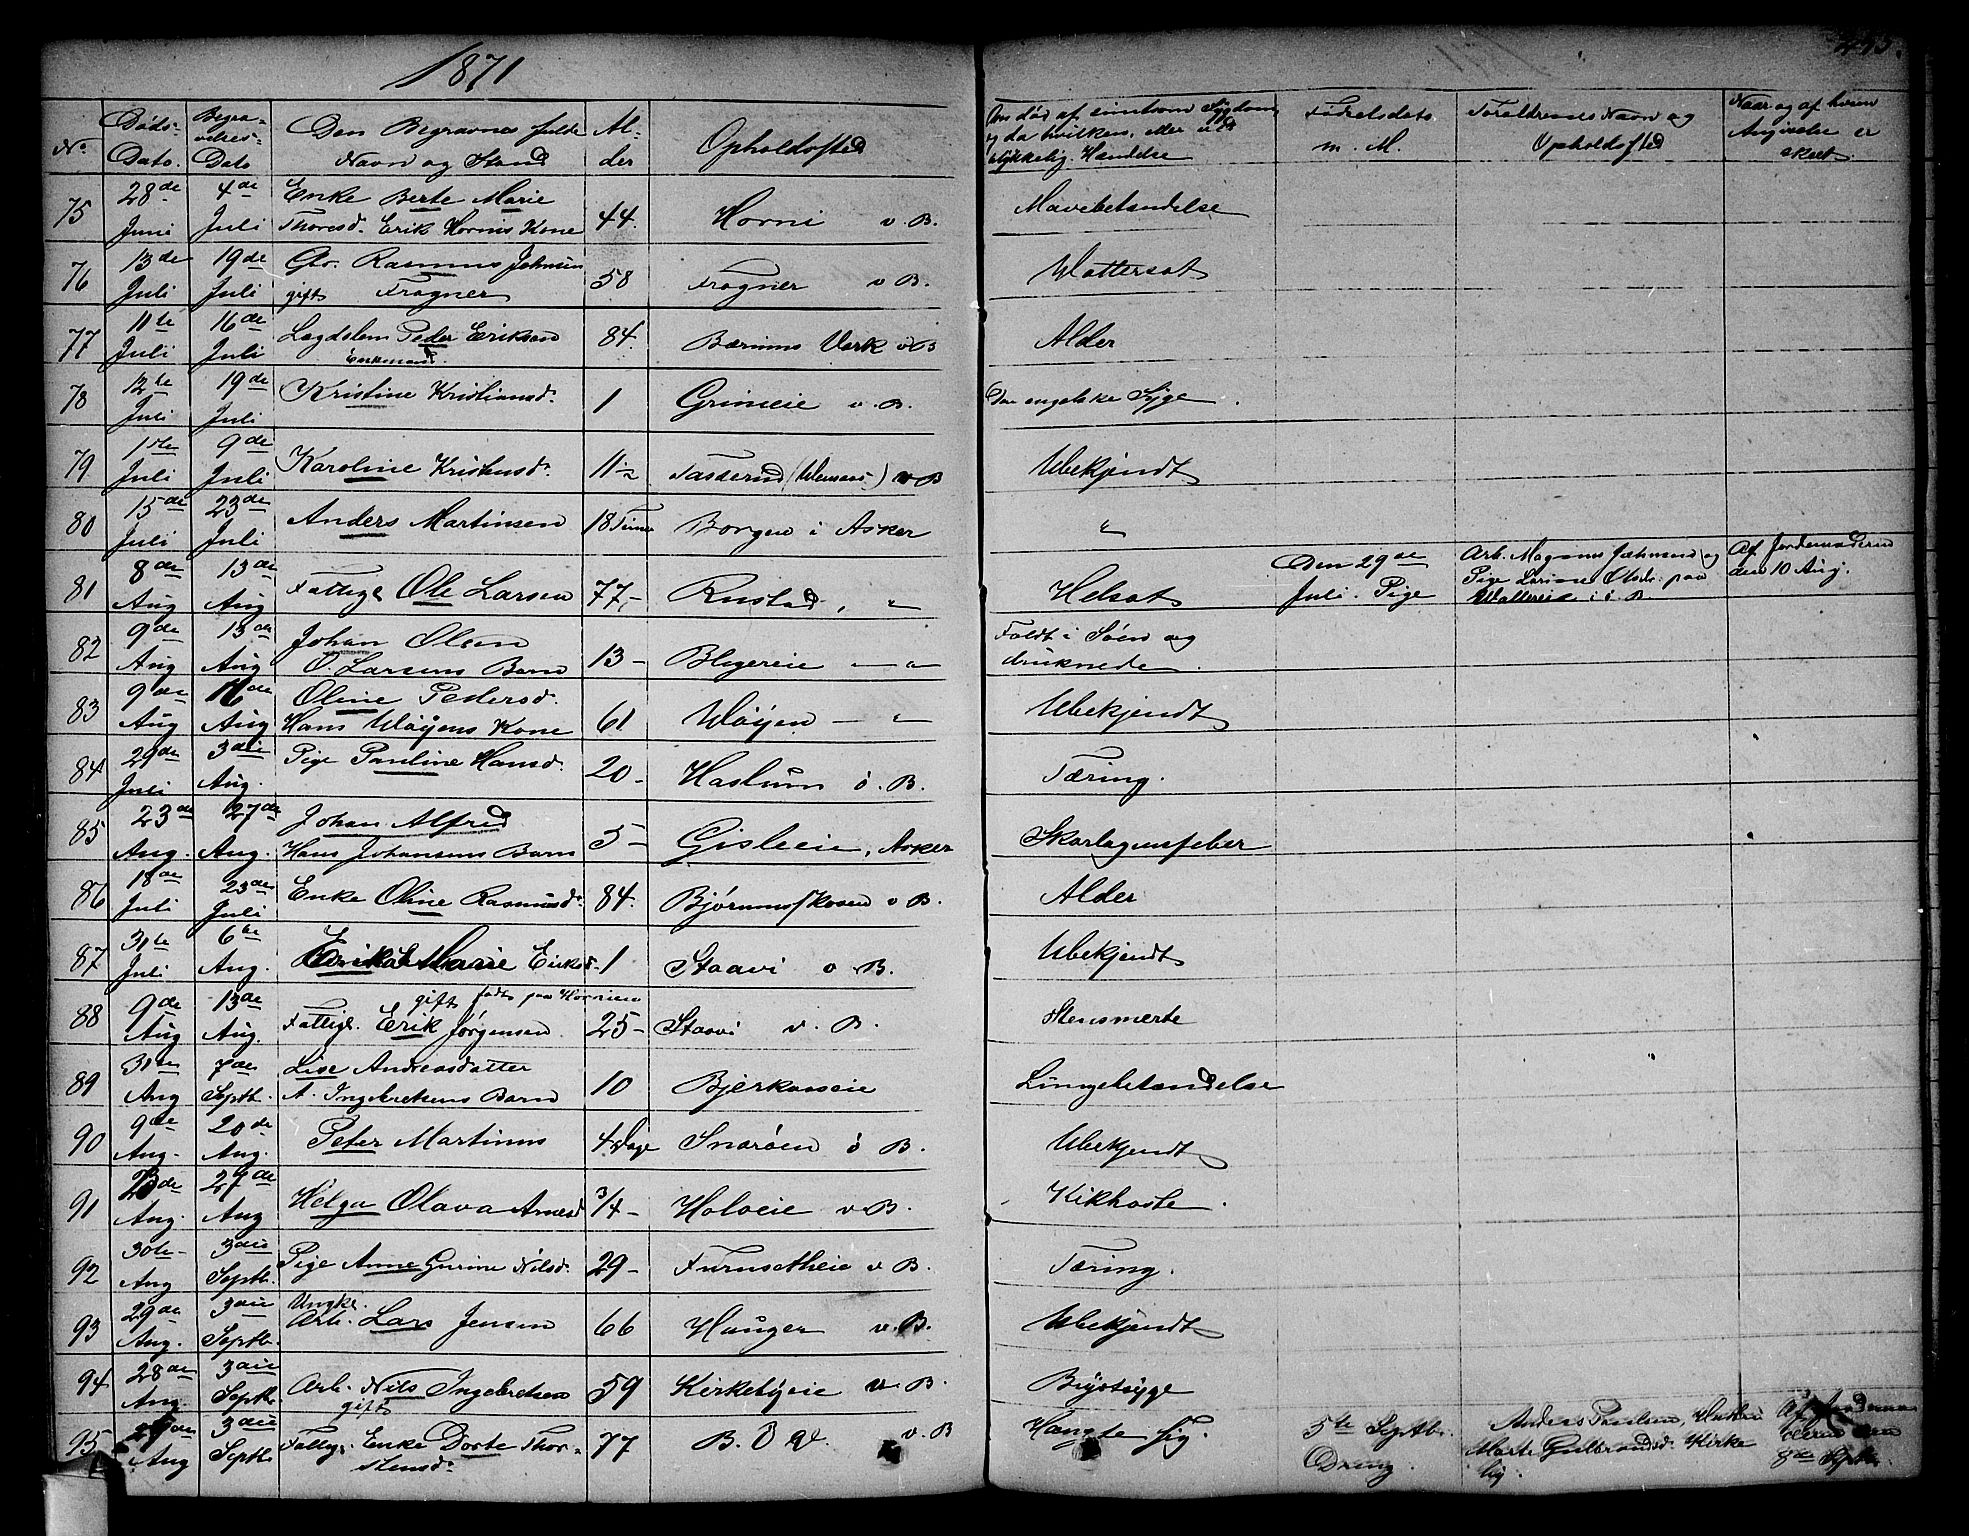 1871
No. Døds-Dato. Begravelses-Dato Den Begravnes fulde Navn og Stand Alder Opholdssted Om død af smitsom Sygdom, og da hvilken, eller ved ulykkelig Hændelse Fødselsdato m. M. Forældrenes Navn og Opholdssted Naar og af hvem Angivelse er skeet.
75 28de Juni 4de Juli Enke Berte Marie
Thoresd. Erik Hornis Kone 44. Horni v. B. Mavebetændelse
76 13de Juli 19de Juli Gr. Rasmus Johnsen
gift Frogner 58 Frogner v B. Vattersot
77 11te Juli 16de Juli Lægdslem Peder Eriksen
Enkemand 84. Bærums Værk v B Alder
78 12te Juli 19de Juli Kristine Kristiansd. 1 Grineie v. B. Den engelske Syge
79 1ste Juli 9de Juli Karoline Kristensd. 11 Tasserud v B Ubekjendt
80 15de Juli 23de Juli Anders Martinsen 18 Timer Borgen i Asker "
81 8de Aug 13de Aug Fattige Ole Larsen 77 Rustad, " Helsot Den 29de Juli. Pige Arb. Magnus Johnsen og Pige Larine Olsdr. paa Vallereie i ö. B. Af Jordemoderen den 10 Aug.
82 9de Aug 13de Aug Johan Olsen
O. Larsens Barn 13 – Blegereie – " Faldt i Søen og druknede
83 9de Aug 16de Aug Oline Pedersd.
Hans Wøyens Kone 61 Wøyen – " Ubekjendt
84 29de Juli 3die Aug. Pige Pauline Hansd. 20 – Haslum ö. B. Tæring.
85 23de Aug. 27de Aug. Johan Alfred
Hans Johansens Barn 5 – Gisleeie, Asker Skarlagensfeber
86 18de Juli 23de Juli Enke Oline Rasmusd. 84. Bjørumskoven v B. Alder
87 31te Juli 6te Aug. Marie Eriksd. 1 Staavi v B. Ubekjendt
88 9de Aug 13de Aug. gift født paa Hornieie
Fattigl. Erik Jørgensen 25 – Staavi v. B. Stensmerte
89 31te Aug 7de Septb. Lise Andreasdatter
A. Ingebretsens Barn 10 Bjerkaaseie Lungebetændelse
90 9de Aug. 20de Aug. Peter Martinus 4 Dage Snarøen ö B. Ubekjendt
91 23de Aug. 27de Aug Helga Olava Arnesd 3/4 – Holoeie v B. Kikhoste.
92 30te Aug 3die Septb. Pige Anne Gurine Nilsd. 29 – Furusetheie v B. Tæring.
93 29de Aug. 3die Septb. Ungk.
Arb. Lars Jensen 66 Hauger v. B. Ubekjendt
94 28de Aug. 3die Septb. Arb. Nils Ingebretsen
gift 59 Kirkebyeie v. B. Brystsyge
95 Aug 3die Septb Fattigl. Enke Dorte Thorstensd. 77 v. B Hængte sig. 5te Septbr. Dreng. Anders Paulsen, Marte Gulbrandsd. Af Jordemoderen den 8de Septb.